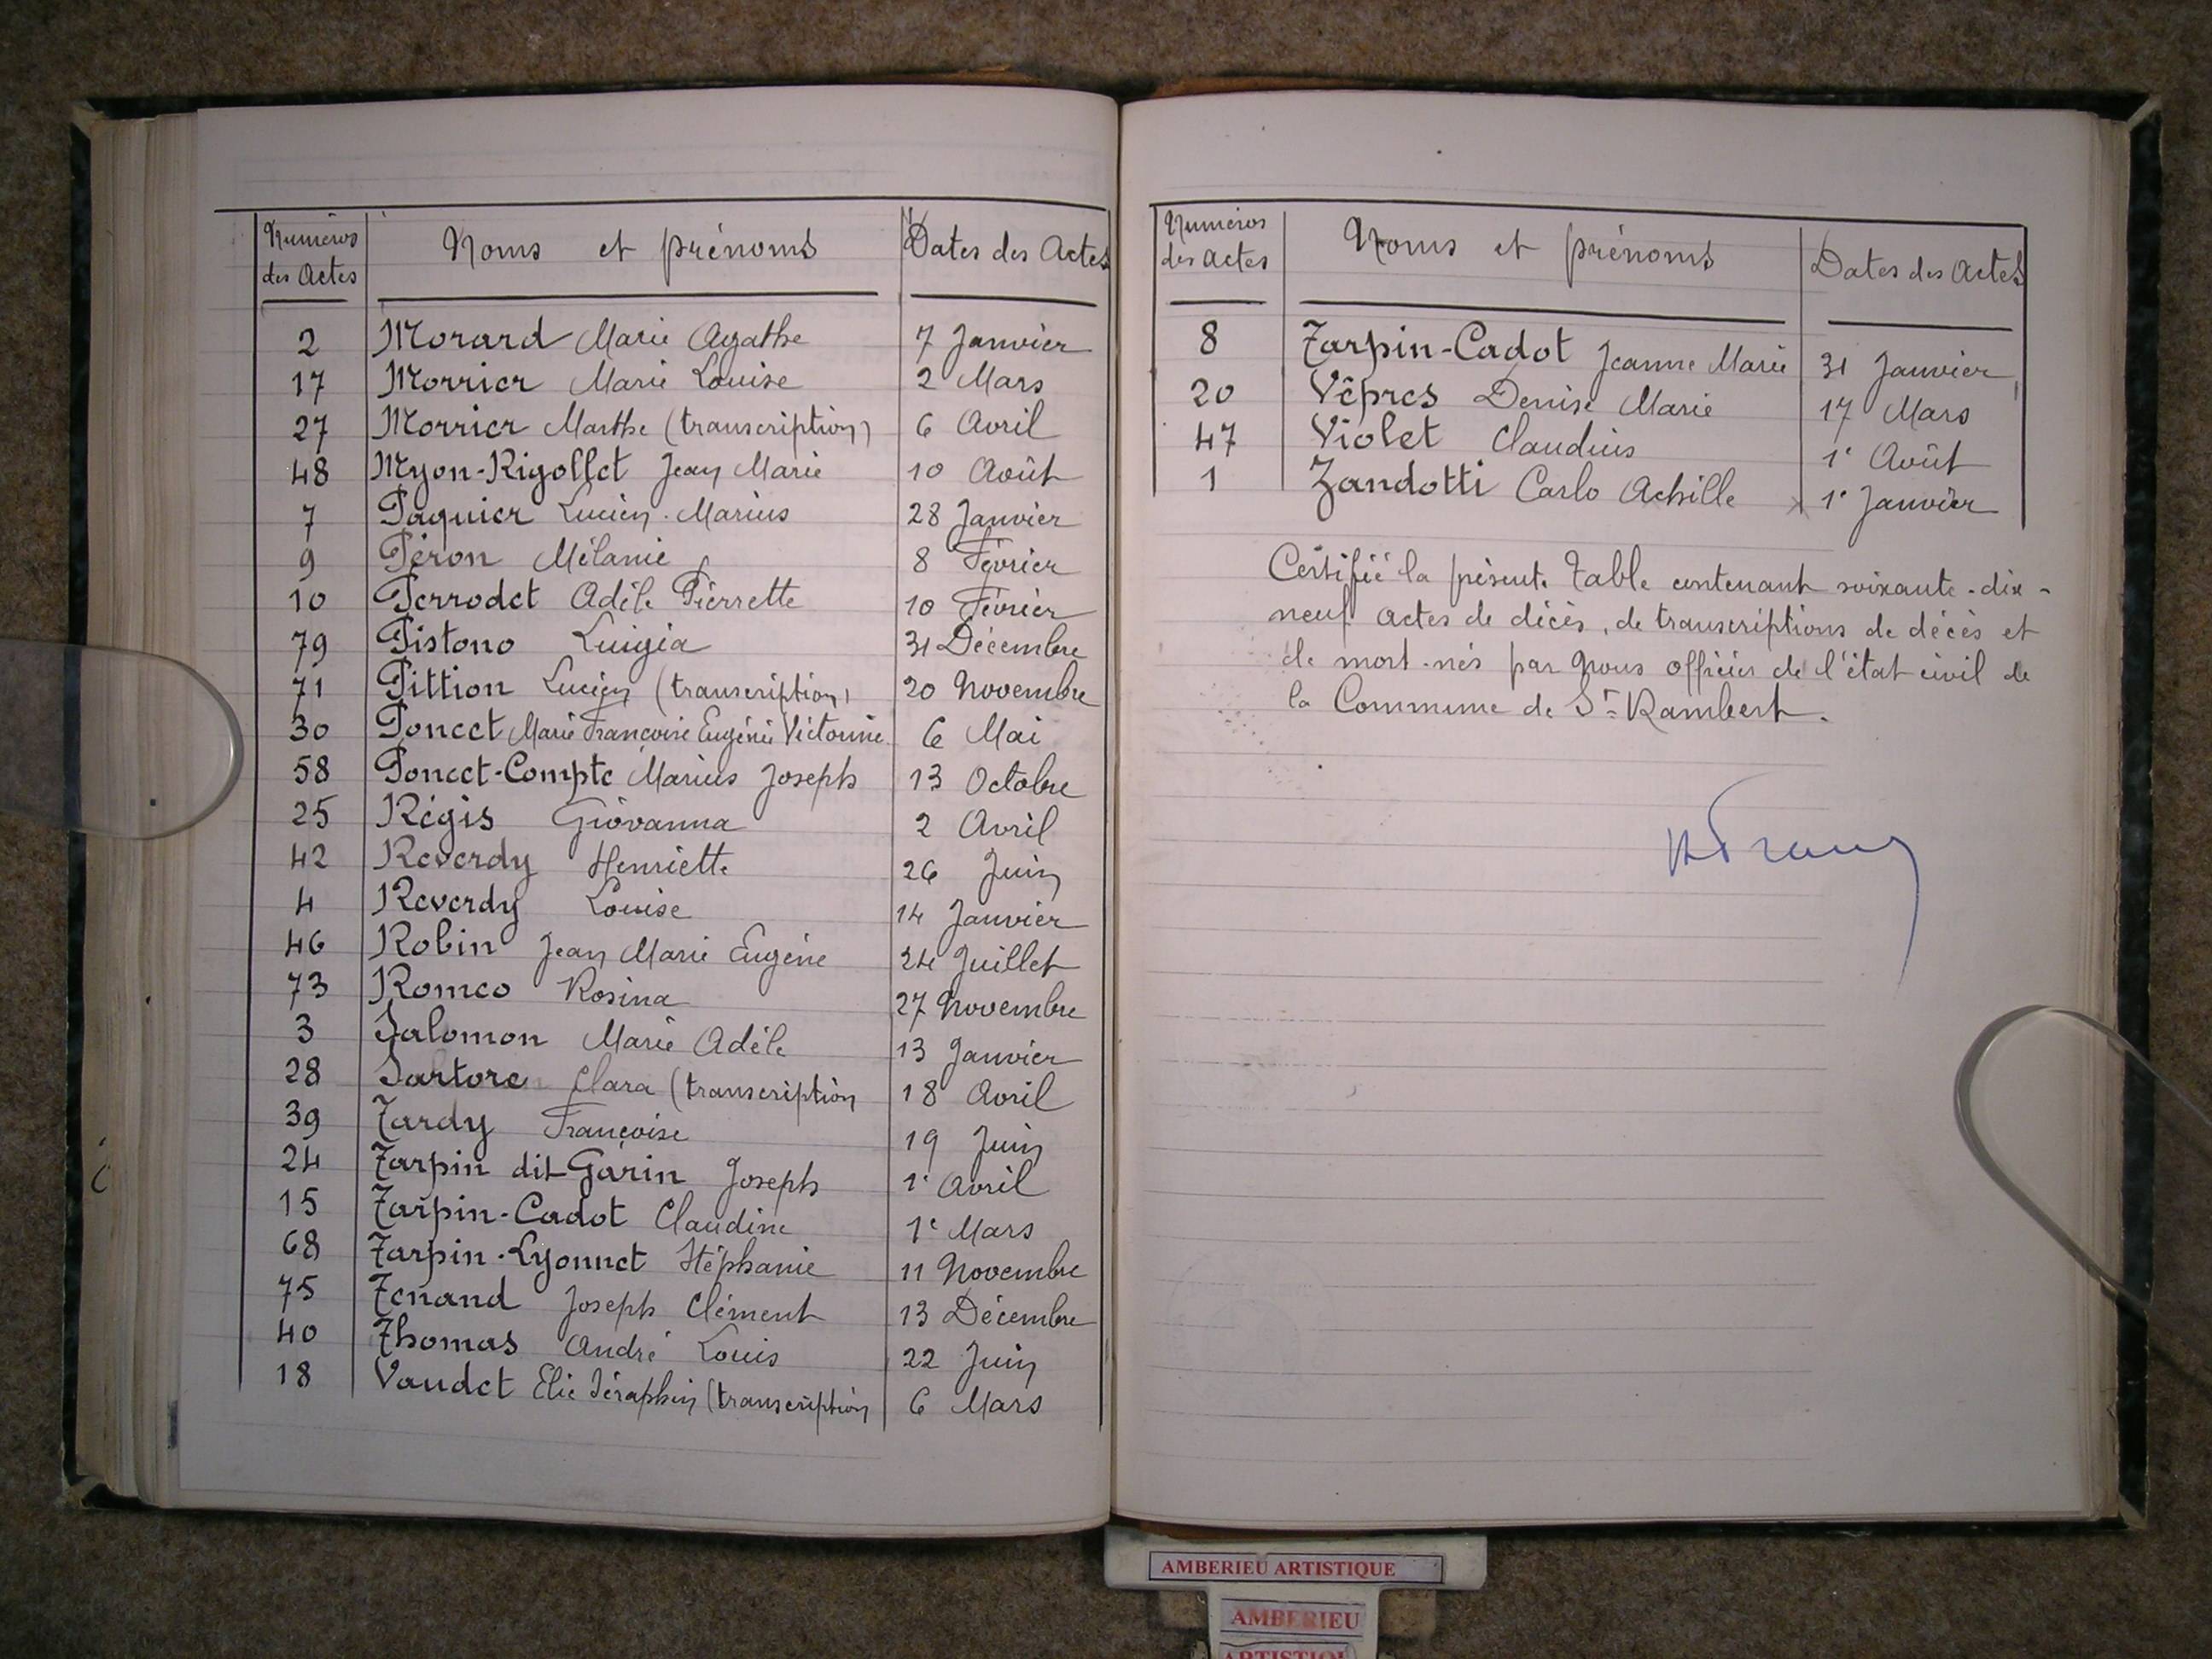 Numéros des Actes Noms et prénoms Dates des Actes
2 Morard Marie Agathe 7 Janvier
17 Morrier Marie Louise 2 Mars
27 Morrier Marthe (transcription) 6 Avril
48 Myon-Rigollet Jean Marie 10 Août
7 Paquier Lucien Marius 28 Janvier
9 Péron Mélanie 8 Février
10 Perrodet Adèle Pierrette 10 Février
79 Pistono Luigia 31 Décembre
71 Pittion Lucien (transcription) 20 Novembre
30 Poncet Marie Françoise Eugénie Victorine 6 Mai
58 Poncet-Compte Marius Joseph 13 Octobre
25 Régis Giovanna 2 Avril
42 Reverdy Henriette 26 Juin
4 Reverdy Louise 14 Janvier
46 Robin Jean Marie Eugène 24 Juillet
73 Romeo Rosina 27 Novembre
3 Salomon Marie Adèle 13 Janvier
28 Sartore Clara (transcription 18 Avril
39 Tardy Françoise 19 Juin
24 Tarpin dit Garin Joseph 1er Avril
15 Tarpin-Cadot Claudine 1er Mars
68 Tarpin-Lyonnet Stéphanie 11 Novembre
75 Tenand Joseph Clément 13 Décembre
40 Thomas André Louis 22 Juin
18 Vaudet Elie Séraphin (transcription 6 Mars
Numéros des actes Noms et prénoms Dates des actes
8 Tarpin-Cadot Jeanne Marie 31 Janvier
20 Vêpres Denise Marie 17 Mars
47 Violet Claudius 1er Août
1 Zandotti Carlo Achille x 1er Janvier
Certifié la présente table contenant soixante-dix-
neuf actes de décès, de transcriptions de décès et
de mort-nés par nous officier de l'état civil de
la Commune de St Rambert.
AMBERIEU ARTISTIQUE
AMBERIEU
ARTISTIQUE